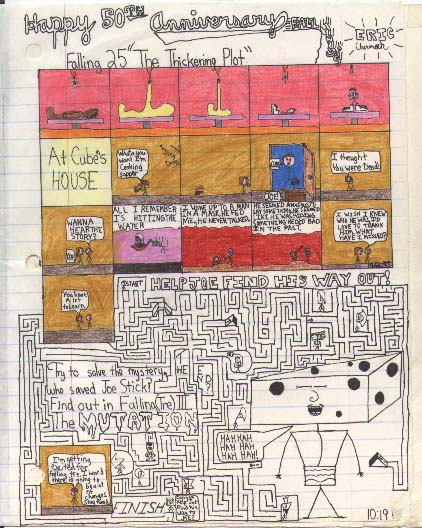 Happy 50TH Anniversary
FALL
ERIC
Charnesk
Falling 25 "The Thickering Plot"
At Cube's
HOUSE
What'a you
want I'm
Cooking
supper
JOE!
I thought
You were Dead!
WANNA
HEAR THE
STORY?
ALL I REMEMBER
IS HITTING THE
WATER
I WOKE UP TO A MAN
IN A MASK. HE FED
ME, HE NEVER TALKED.
HE SEEMED AFRAID TO
SAY SOMETHING. HE SEEMED
LIKE HE WAS HIDING
SOMETHING HE DID BAD
IN THE PAST.
I WISH I KNEW
WHO HE WAS I'D
LOVE TO THANK
HIM. WHAT
HAVE I MISSED?
You have
A lot
to learn
START
HELP JOE FIND HIS WAY OUT!
Try to solve the mystery,
who saved Joe Stick?
Find out in Falling (re) II
The MUTATION
HAH HAH
HAH HAH
HAH HAH
HAH!
I'm getting
Exited for
Falling (re). I heard
there is going to
be a lot of
changes.
Stay tuned
FINISH
10:19